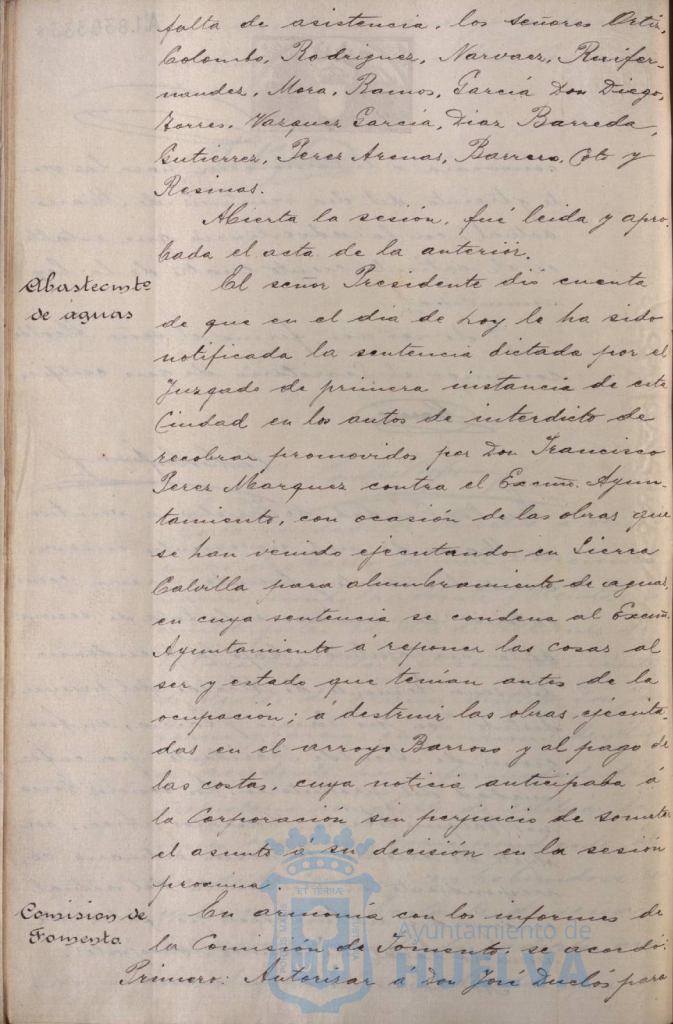 falta de asistencia, los señores Ortiz,
Colombo, Rodriguez, Narvaez, Ruifer-
nandez, Mora, Ramos, García Don Diego,
Torres, Vazquez García, Diaz Barreda,
Gutierrez, Perez Arenas, Barrero, Coto y
Resinas.
Abierta la sesión, fué leida y apro-
bada el acta de la anterior.
Abastecmto
de aguas
El señor Presidente dió cuenta
de que en el dia de hoy le ha sido
notificada la sentencia dictada por el
Juzgado de primera instancia de esta
Ciudad en los autos de interdicto de
recobrar promovidos por Don Francisco
Perez Marquez contra el Excmo. Ayun-
tamiento, con ocasión de las obras que
se han venido ejecutando en Sierra
Calvilla para alumbramiento de aguas,
en cuya sentencia se condena al Excmo.
Ayuntamiento á reponer las cosas al
ser y estado que tenían antes de la
ocupación; á destruir las obras ejecuta-
das en el arroyo Barroso y al pago de
las costas, cuya noticia anticipaba á
la Corporación sin perjuicio de someter
el asunto á su decisión en la sesión
proxima.
Comision de
Fomento
En armonía con los informes de
la Comisión de Fomento, se acordó:
Primero: Autorizar á Don José Duclós para
Ayuntamiento de
HUELVA